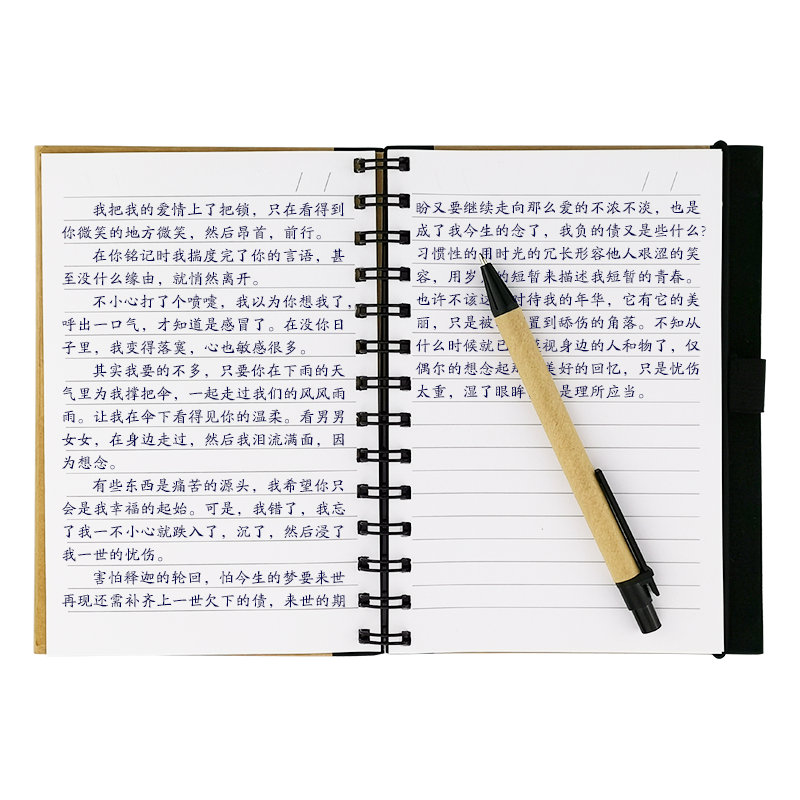 / /
我把我的爱情上了把锁，只在看得到
你微笑的地方微笑，然后昂首，前行。
在你铭记时我揣度完了你的言语，甚
至没什么缘由，就悄然离开。
不小心打了个喷嚏，我以为你想我了，
呼出一口气，才知道是感冒了。在没你日
子里，我变得落寞，心也敏感很多。
其实我要的不多，只要你在下雨的天
气里为我撑把伞，一起走过我们的风风雨
雨。让我在伞下看得见你的温柔。看男男
女女，在身边走过，然后我泪流满面，因
为想念。
有些东西是痛苦的源头，我希望你只
会是我幸福的起始。可是，我错了，我忘
了我一不小心就跌入了，沉了，然后浸了
我一世的忧伤。
害怕释迦的轮回，怕今生的梦要来世
再现还需补齐上一世欠下的债，来世的期
/ /
盼又要继续走向那么爱的不浓不淡，也是
成了我今生的念了，我负的债又是些什么?
习惯性的用时光的冗长形容他人艰涩的笑
容，用岁的短暂来描述我短暂的青春。
也许不该这时待我的年华，它有它的美
丽，只是被置到舔伤的角落。不知从
什么时候就已视身边的人和物了，仅
偶尔的想念起美好的回忆，只是忧伤
太重，湿了眼眸是理所应当。